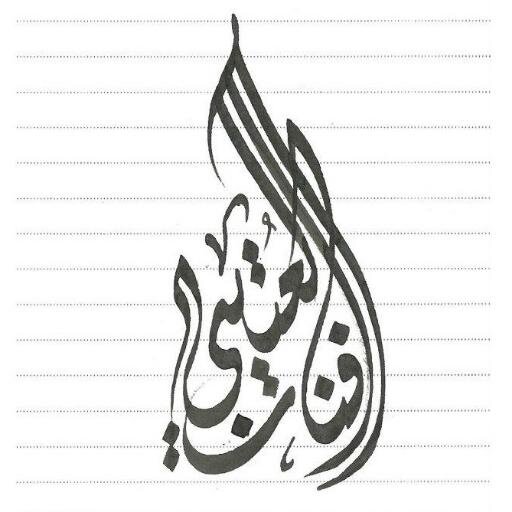 افنان العتيبي